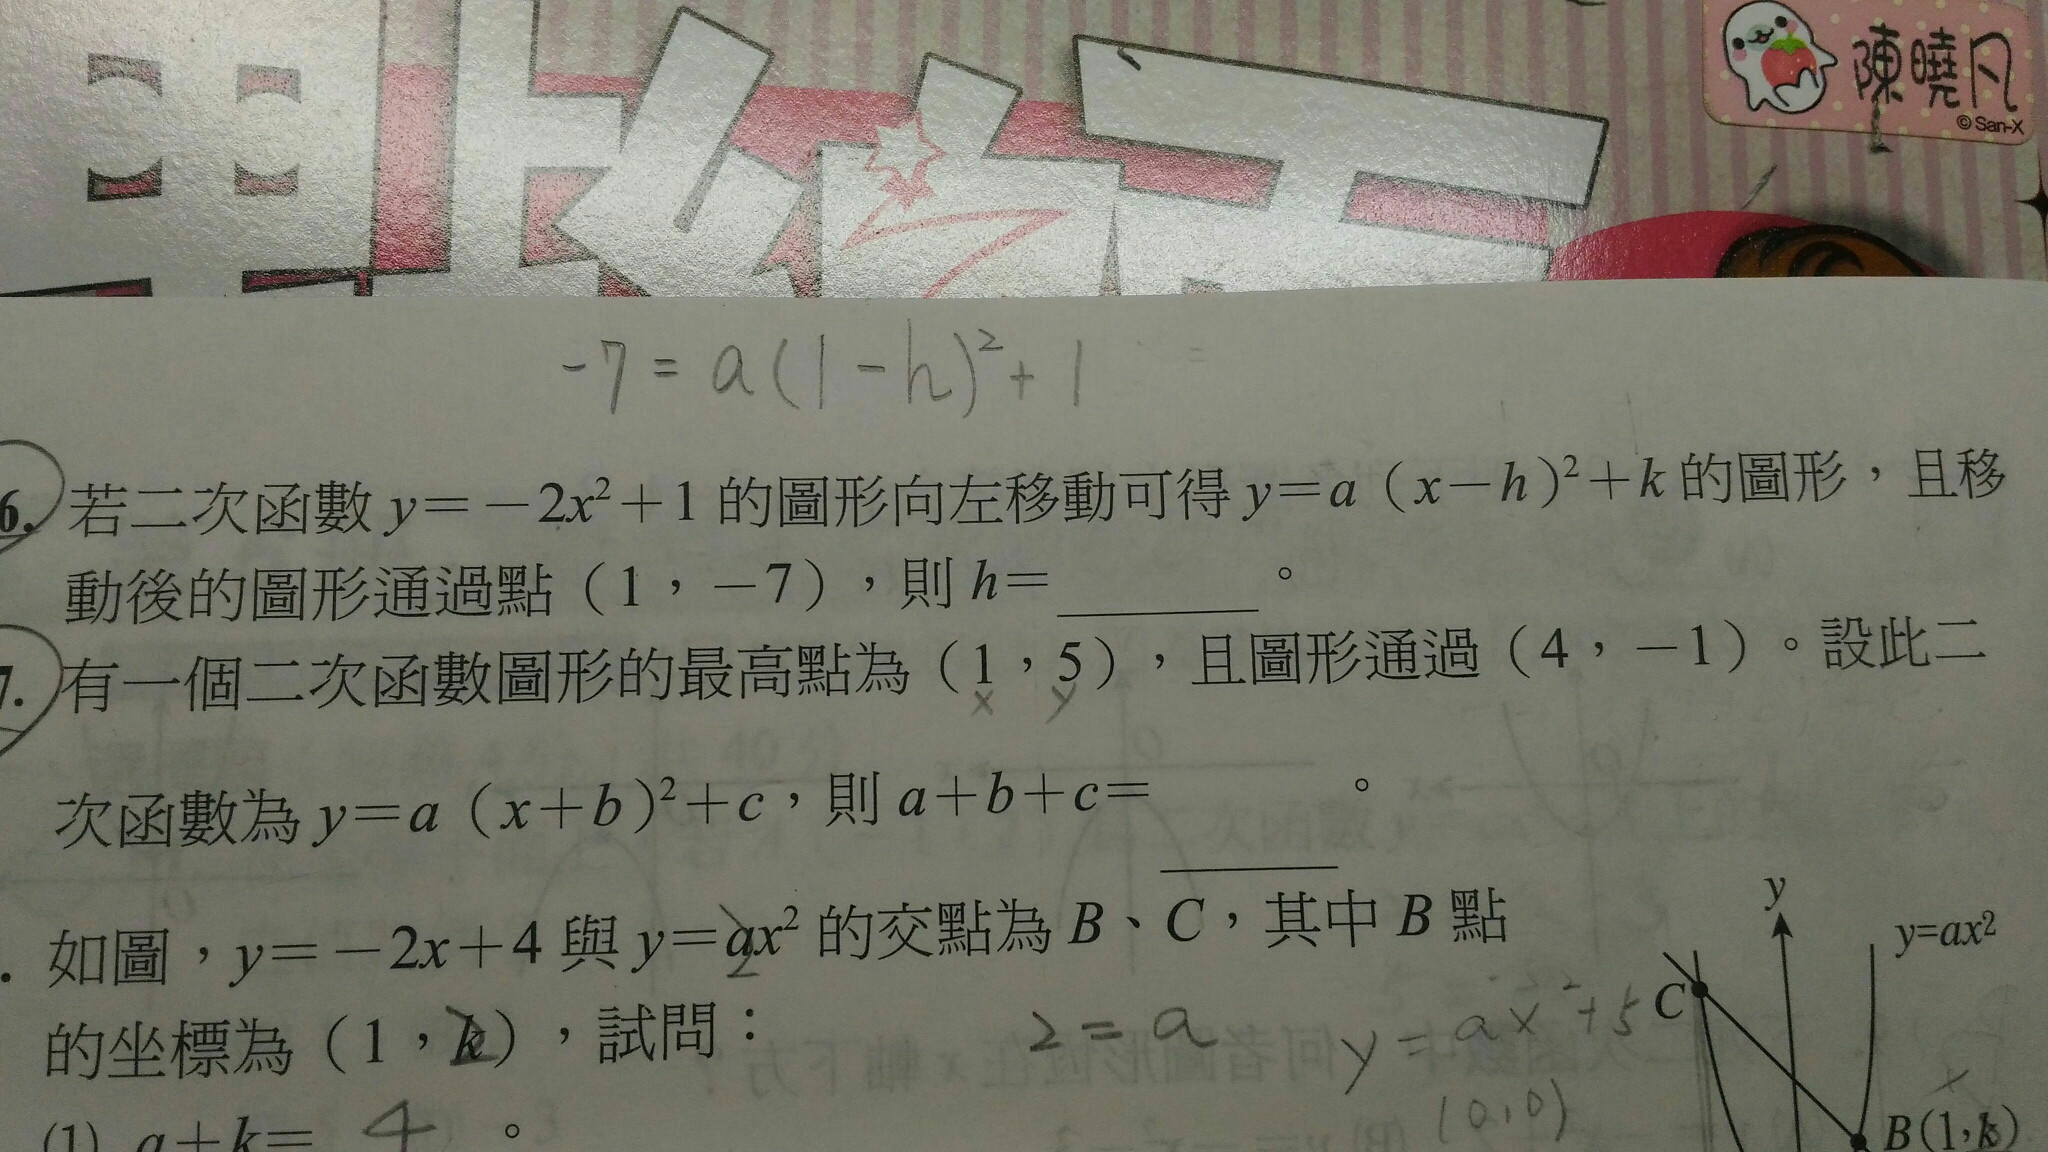 陳曉凡
© San-X
-7 = a(1-h)²+1
6. 若二次函數 y=-2x²+1 的圖形向左移動可得 y=a(x-h)²+k 的圖形，且移
動後的圖形通過點（1，-7），則 h=______。
7. 有一個二次函數圖形的最高點為（1，5），且圖形通過（4，-1）。設此二
x y
次函數為 y=a（x+b）²+c，則 a+b+c=______。
. 如圖，y=-2x+4 與 y=ax² 的交點為 B、C，其中 B 點
2
的坐標為（1，k），試問：
2 = a
y = ax²+5
(0,0)
(1) a+k= 4 。
y
y=ax²
C
B(1,k)